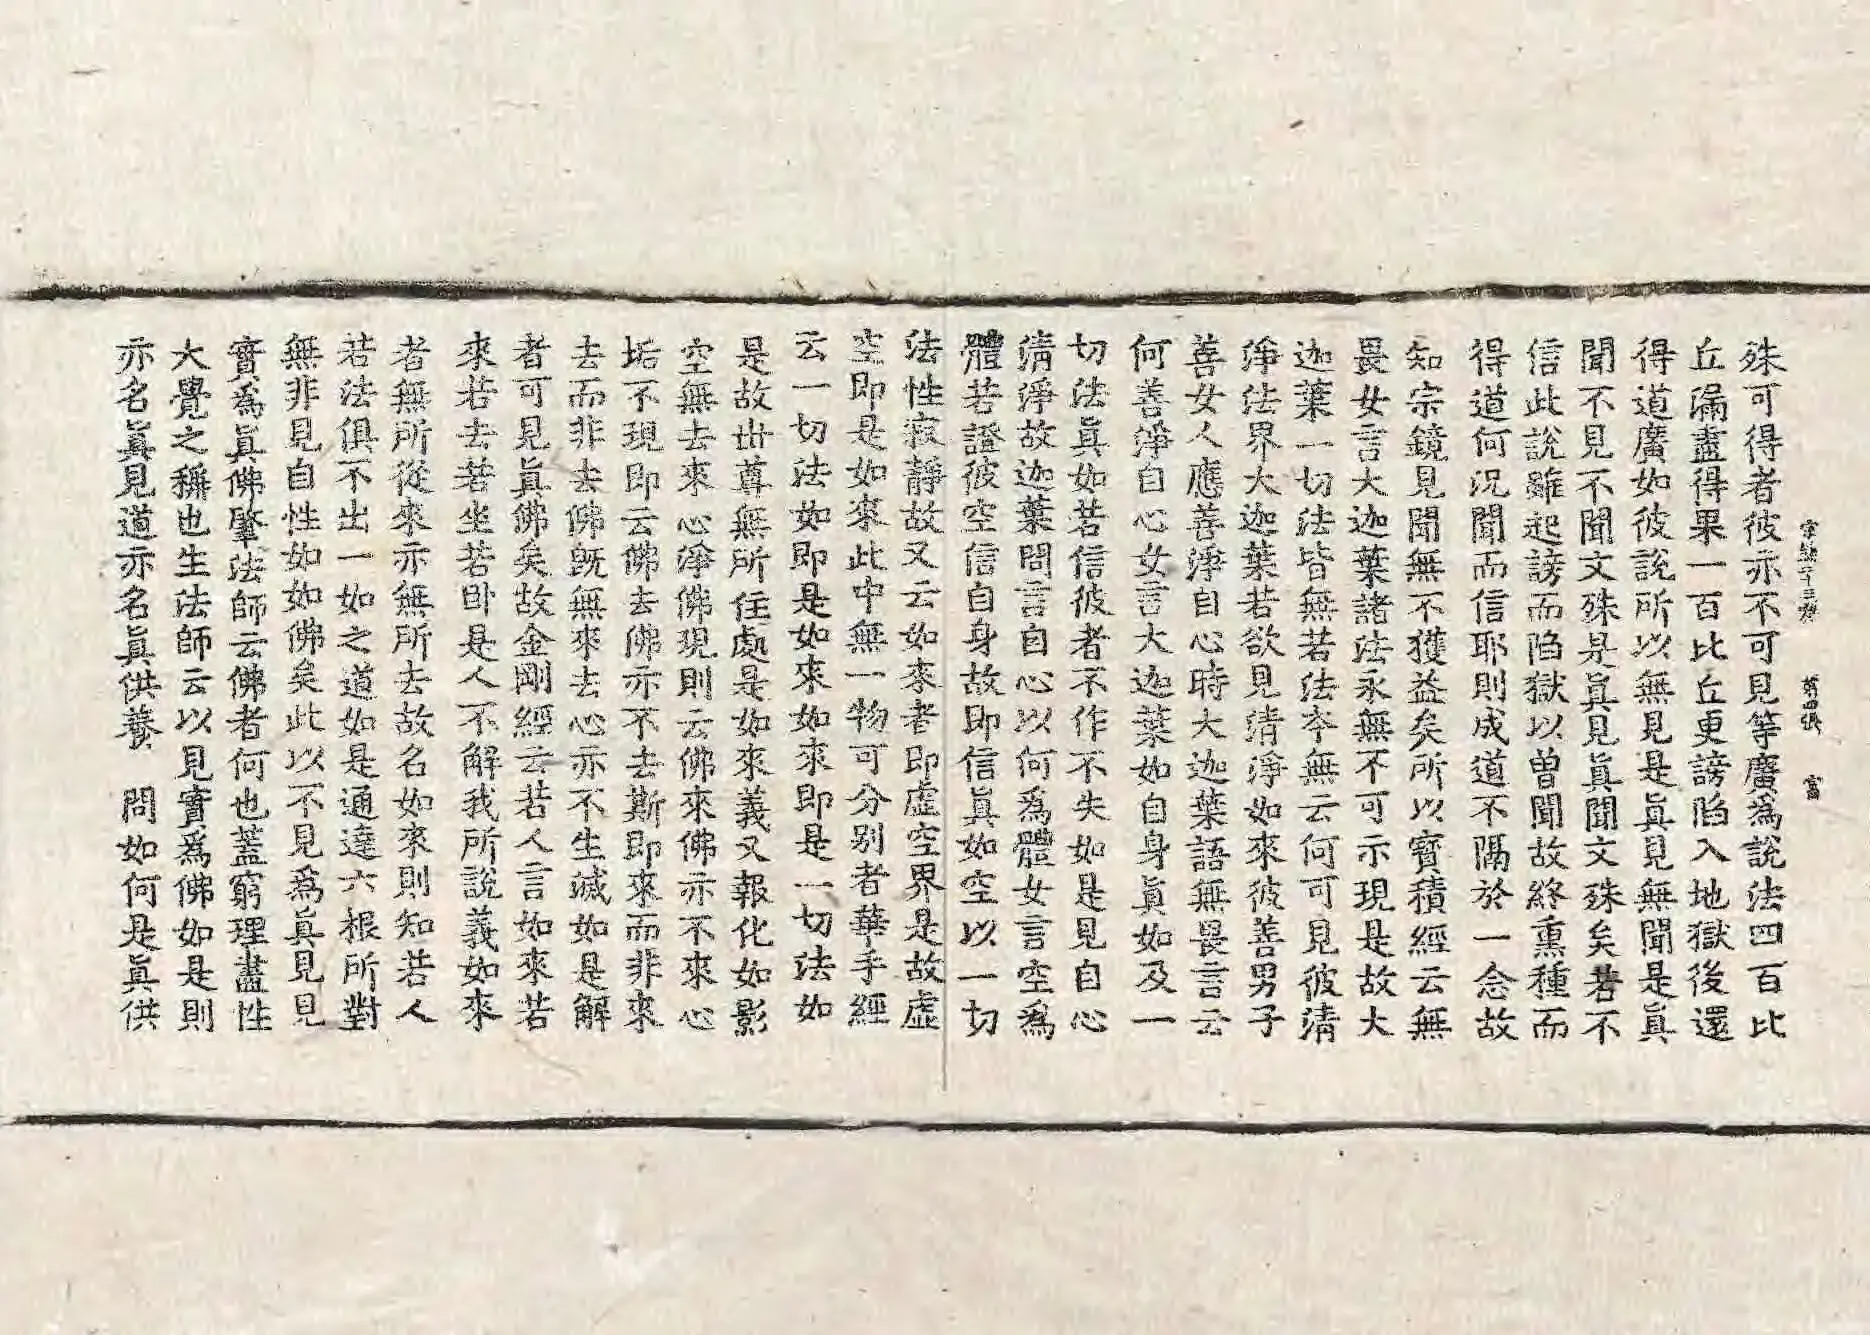 殊可得者彼亦不可見等廣爲說法四百比
丘漏盡得果一百比丘更謗陷入地獄後還
得道廣如彼說所以無見是眞見無聞是眞
聞不見不聞文殊是眞見眞聞文殊矣若不
信此說雖起謗而陷獄以曾聞故終熏種而
得道何況聞而信耶則成道不隔於一念故
知宗鏡見聞無不獲益矣所以寶積經云無
畏女言大迦葉諸法永無不可示現是故大
迦葉一切法皆無若法夲無云何可見彼清
淨法界大迦葉若欲見清淨如來彼善男子
善女人應善淨自心時大迦葉語無畏言云
何善淨自心女言大迦葉如自身眞如及一
切法眞如若信彼者不作不失如是見自心
清淨故迦葉問言自心以何爲體女言空爲
體若證彼空信自身故即信眞如空以一切
法性寂靜故又云如來者即虛空界是故虛
空即是如來此中無一物可分別者華手經
云一切法如即是如來如來即是一切法如
是故世尊無所住處是如來義又報化如影
空無去來心淨佛現則云佛來佛亦不來心
垢不現即云佛去佛亦不去斯即來而非來
去而非去佛旣無來去心亦不生滅如是解
者可見眞佛矣故金剛經云若人言如來若
來若去若坐若卧是人不解我所說義如來
者無所從來亦無所去故名如來則知若人
若法俱不出一如之道如是通達六根所對
無非見自性如如佛矣此以不見爲眞見見
實爲眞佛肇法師云佛者何也蓋窮理盡性
大覺之稱也生法師云以見實爲佛如是則
亦名眞見道亦名眞供養　問如何是眞供
宗鏡二十三卷　第四張　富